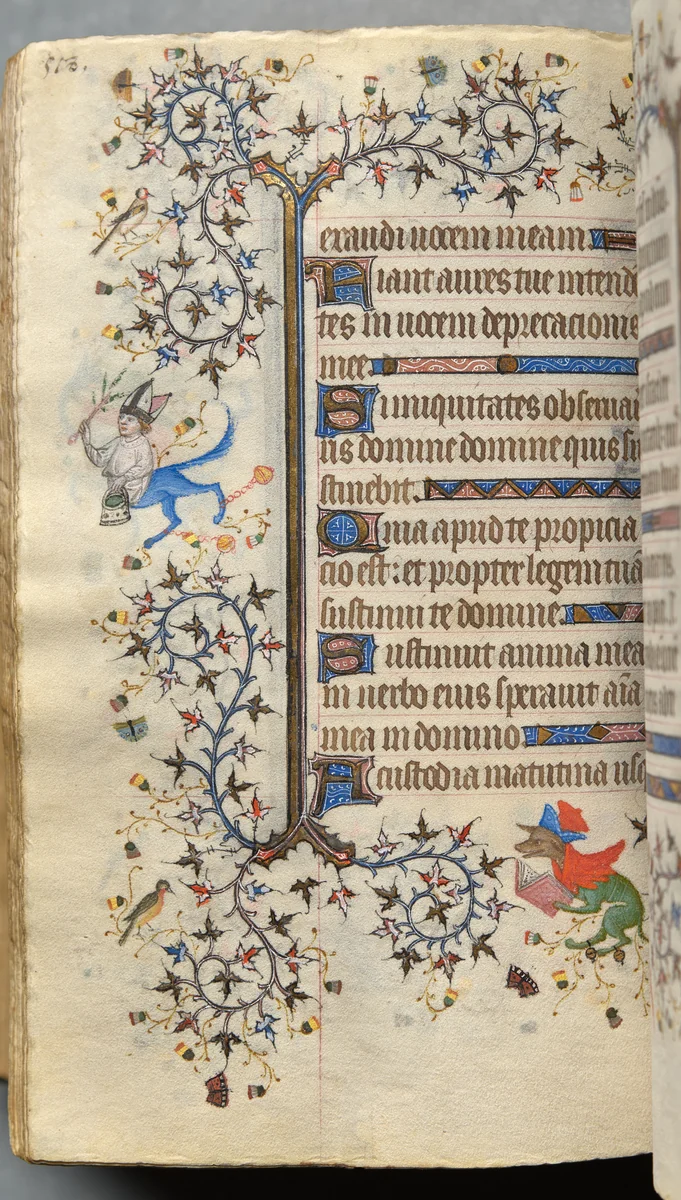 513.
exaudi uocem meam.
Fiant aures tue intend
tes in uocem deprecacionis
mee.
Si iniquitates obseruau
ris domine domine quis su
stinebit.
Quia apud te propicia
cio est: et propter legem tuā
sustinui te domine.
Sustinuit anima mea
in uerbo eius sperauit aīa
mea in domino.
A custodia matutina usq